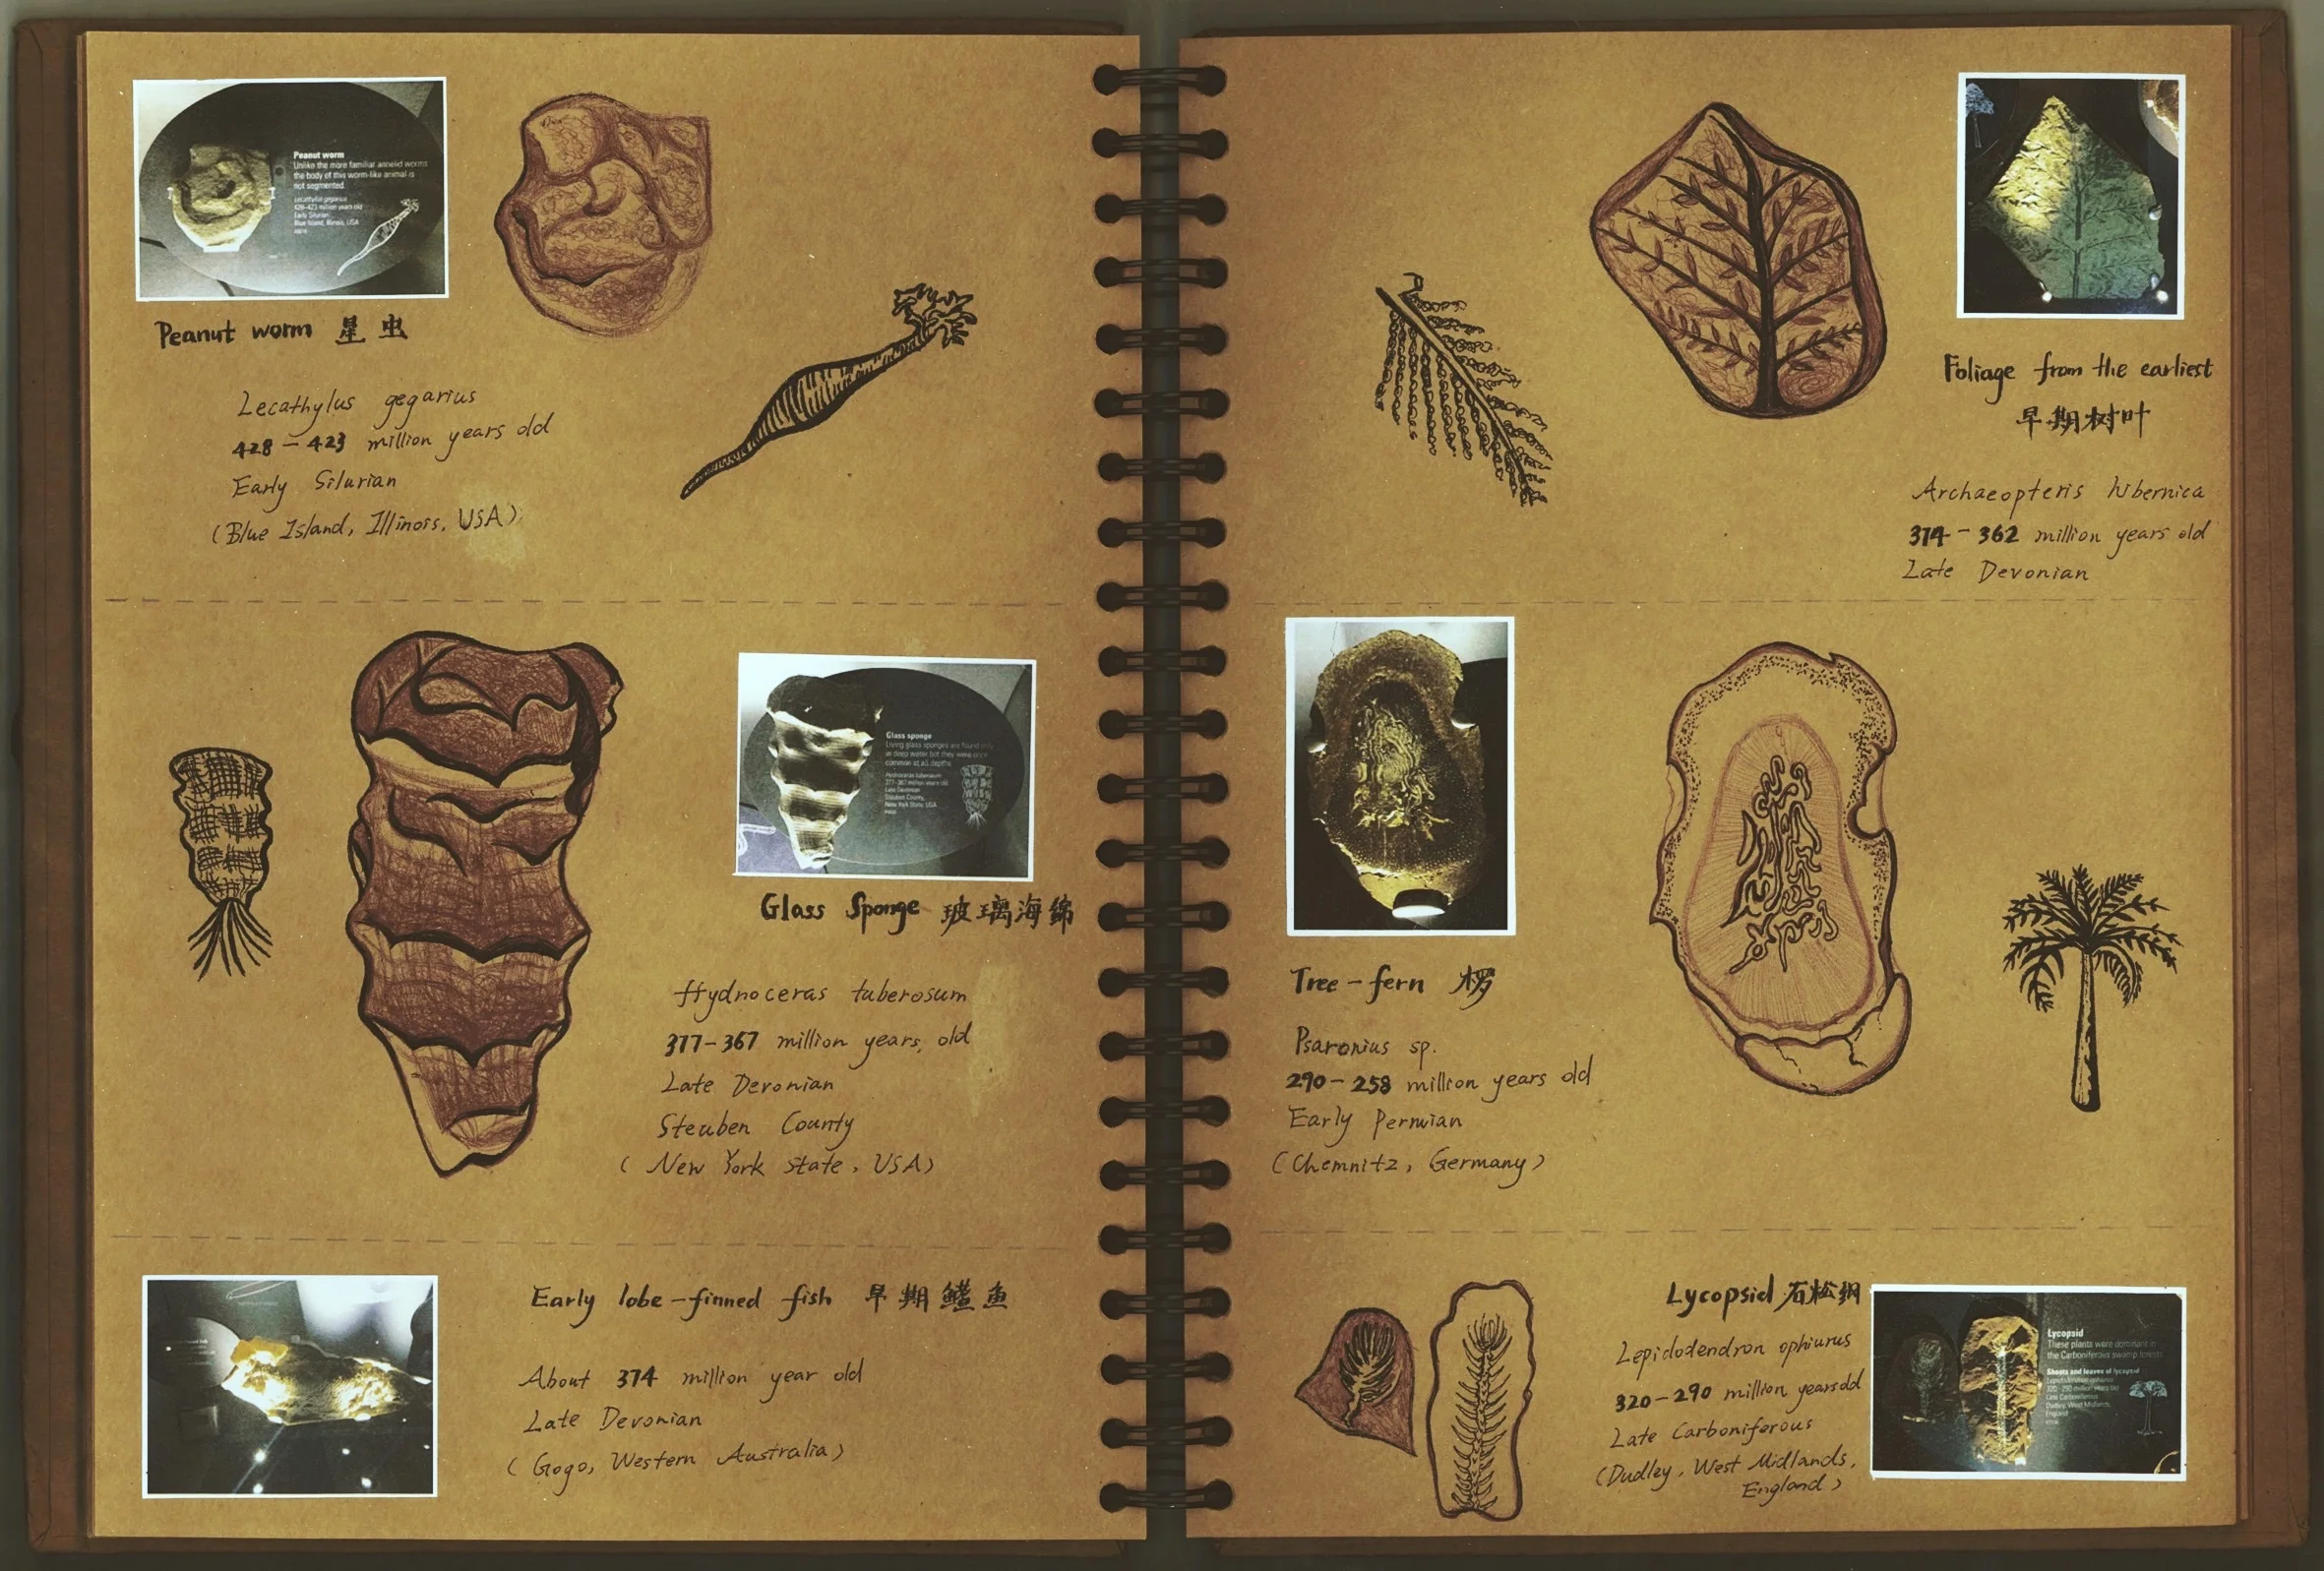 Peanut worm
Unlike the more familiar annelid worms
the body of this worm-like animal is
not segmented.
Lecathylus gegarius
428-423 million years old
Early Silurian
Blue Island, Illinois, USA
Peanut worm 星虫
Lecathylus gegarius
428-423 million years old
Early Silurian
(Blue Island, Illinois, USA)
Glass sponge
Living glass sponges are found only
in deep water but they were once
common at all depths
Hydnoceras tuberosum
377-367 million years old
Late Devonian
Steuben County,
New York State, USA
Glass Sponge 玻璃海绵
Hydnoceras tuberosum
377-367 million years, old
Late Devonian
Steuben County
(New York state, USA)
Early lobe-finned fish 早期鳍鱼
About 374 million year old
Late Devonian
(Gogo, Western Australia)
Foliage from the earliest
早期树叶
Archaeopteris hibernica
374-362 million years old
Late Devonian
Tree-fern 桫
Psaronius sp.
290-258 million years old
Early Permian
(Chemnitz, Germany)
Lycopsid 石松纲
Lepidodendron ophiurus
320-290 million years old
Late Carboniforous
(Dudley, West Midlands,
England)
Lycopsid
These plants were dominant in
the Carboniferous swamp forests
Shoots and leaves of lycopsid
Lepidodendron ophiurus
320-290 million years old
Late Carboniferous
Dudley, West Midlands,
England